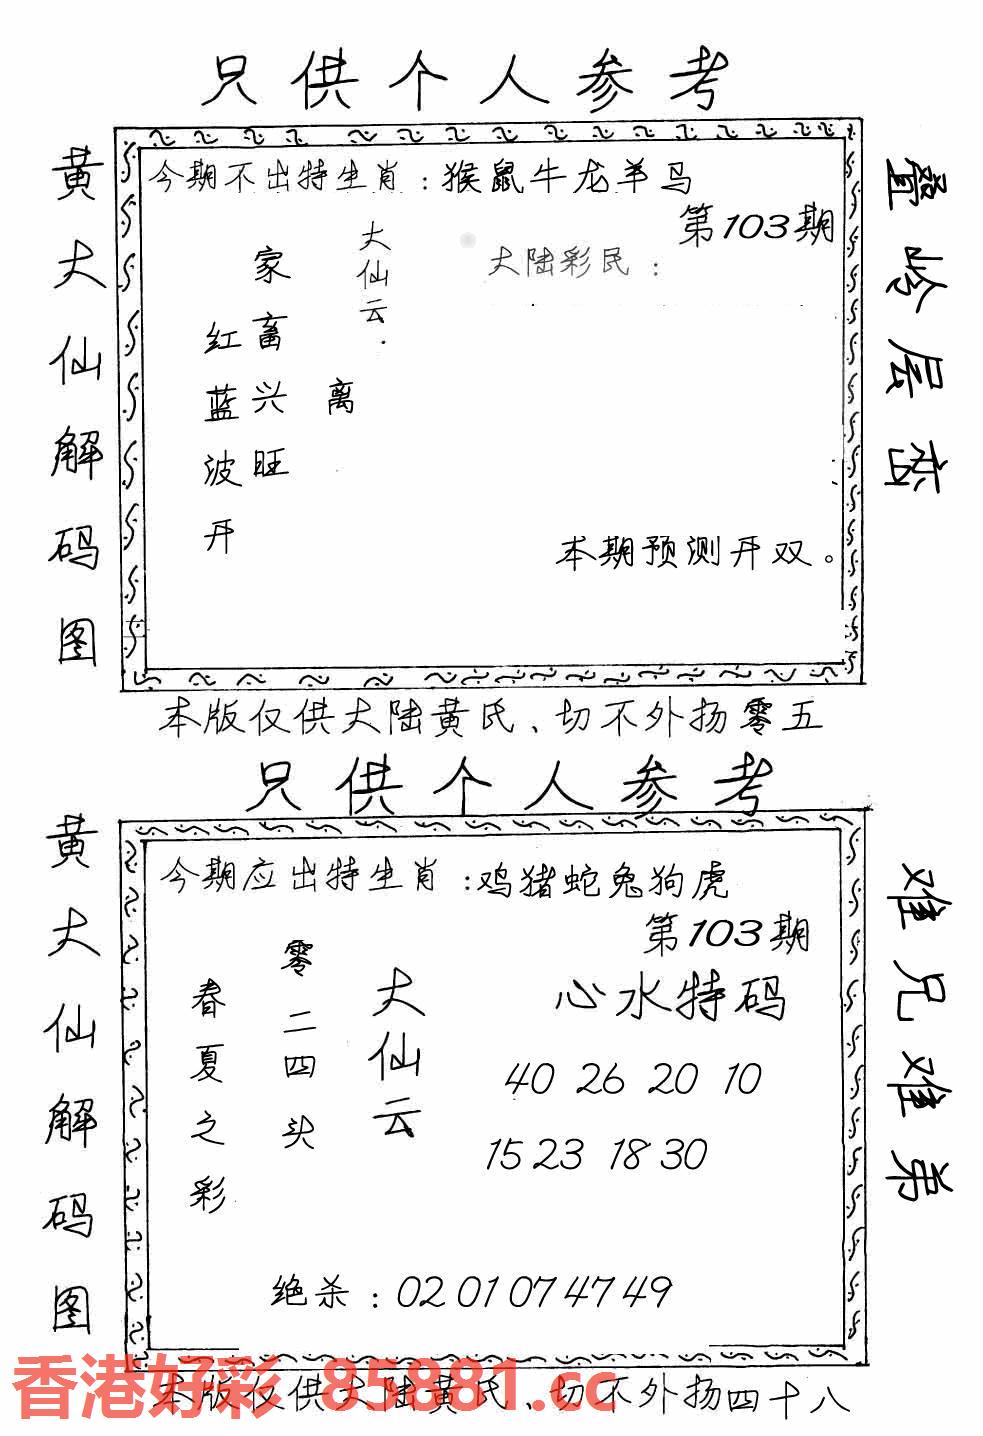 只供个人参考
黄大仙解码图
今期不出特生肖：猴鼠牛龙羊马
第103期
大仙云.
大陆彩民：
离
家畜兴旺
红蓝波开
本期预测开双。
叠岭层峦
本版仅供大陆黄氏、切不外扬零五
只供个人参考
黄大仙解码图
今期应出特生肖：鸡猪蛇兔狗虎
第103期
大仙云
零二四头
春夏之彩
心水特码
40 26 20 10
15 23 18 30
绝杀：02 01 07 47 49
难兄难弟
本版仅供大陆黄氏、切不外扬四十八
香港好彩 85881.cc